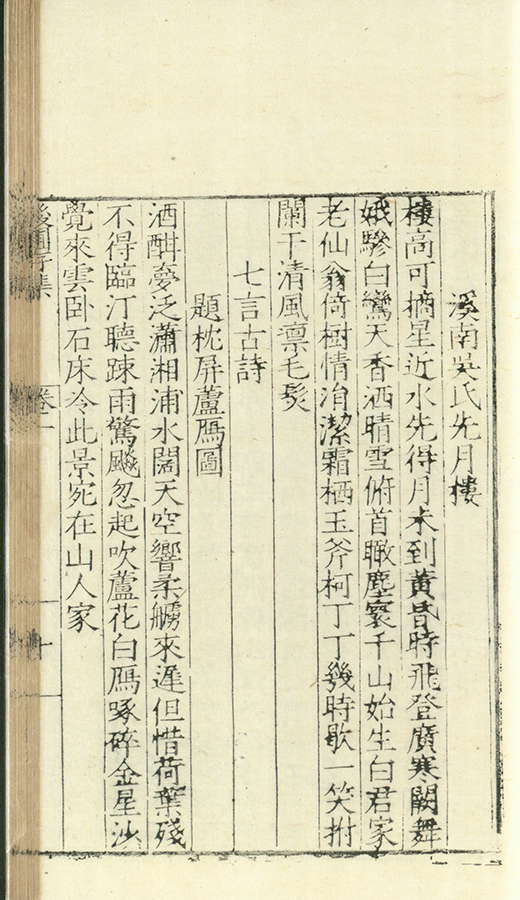 溪南吳氏先月樓
樓高可摘星近水先得月未到黃昏時飛登廣寒闕舞
娥驂白鸞天香洒晴雪俯首瞰塵寰千山始生白君家
老仙翁倚樹情㳙潔霜栖玉斧柯丁丁幾時歇一笑拊
闌干清風凛毛髮
七言古詩
題枕屏蘆鴈圖
酒酣夢泛瀟湘浦水闊天空響柔艣來遲但惜荷葉殘
不得臨汀聽踈雨驚飈忽起吹蘆花白鴈啄碎金星沙
覺來雲卧石床冷此景宛在山人家
卷一